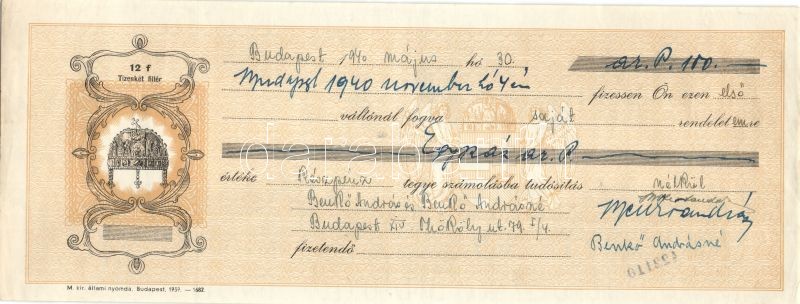 12 f
Tizenkét fillér
Budapest 1940 május hó 30. ar. P. 100.
1940 november hó 4 én fizessen Ön ezen első
váltónál fogva saját rendeletemre
ar. P.
értéke Készpénz tegye számolásba tudósítás nélkül
Benkő András és Benkő Andrásné
Budapest XIV. Thököly ut. 79. I/4.
fizetendő
Benkő Andrásné
M. kir. állami nyomda, Budapest, 1939. — 1682.